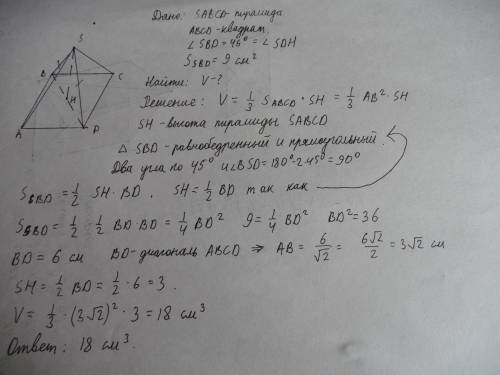 S
B
C
H
A
D
Дано: SABCD-пирамида
ABCD-квадрат,
∠SBD=45°=∠SDH
S_SBD = 9 см²
Найти: V-?
Решение: V = 1/3 S_ABCD · SH = 1/3 AB² · SH
SH-высота пирамиды SABCD
△ SBD-равнобедренный и прямоугольный.
Два угла по 45° и ∠BSD=180°-2·45°=90°
S_SBD = 1/2 SH · BD. SH = 1/2 BD так как
S_SBD = 1/2 · 1/2 BD · BD = 1/4 BD² 9 = 1/4 BD² BD² = 36
BD = 6 см BD-диагональ ABCD ⇒ AB = 6/√2 = 6√2/2 = 3√2 см
SH = 1/2 BD = 1/2 · 6 = 3.
V = 1/3 · (3√2)² · 3 = 18 см³
Ответ: 18 см³.